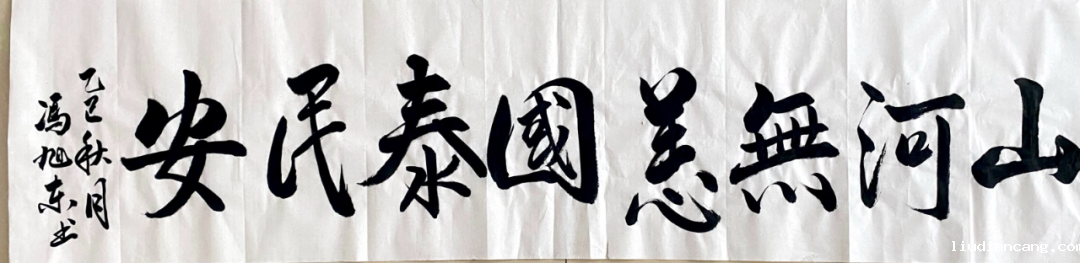 山河無恙國泰民安
乙巳秋月
馮旭东书
lindiancang.com